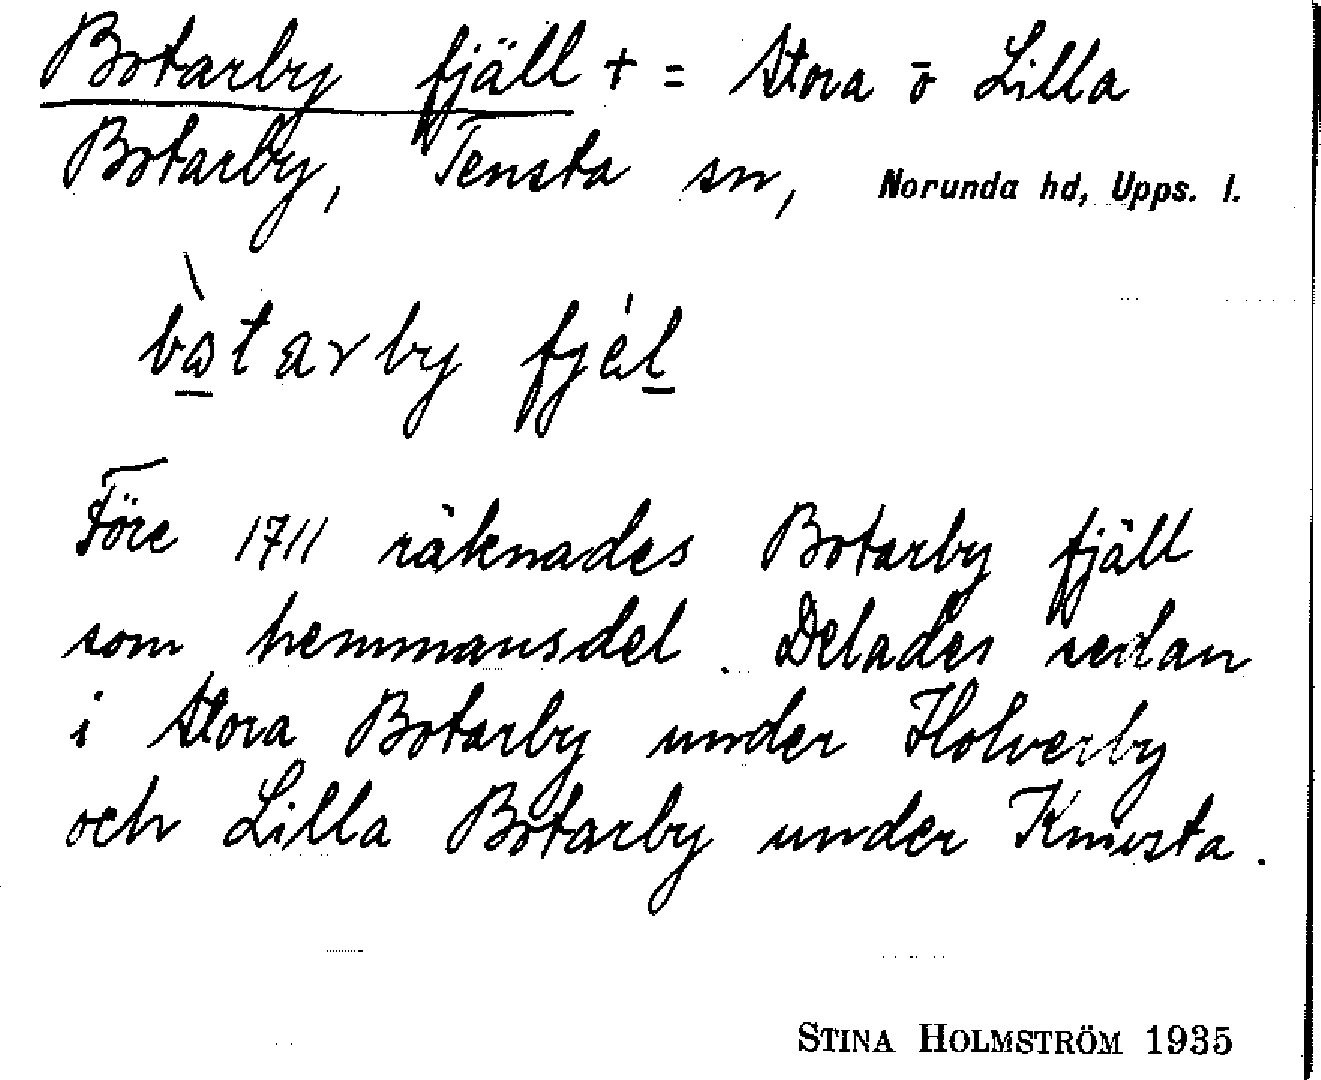 Botarby fjäll + = Stora o Lilla
Botarby, Tensta sn, Norunda hd, Upps. l.
bòtarby fjél
Före 1711 räknades Botarby fjäll
som hemmansdel. Delades sedan
i Stora Botarby under Holverby
och Lilla Botarby under Knivsta.
STINA HOLMSTRÖM 1935